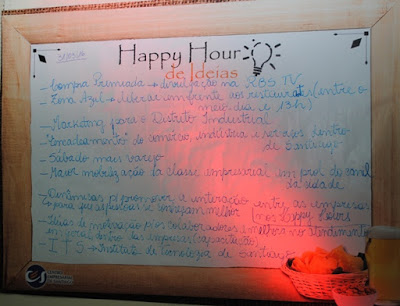 31/03/10
Happy Hour
de Ideias
- Compra Premiada → divulgação na RBS TV
- Zona Azul → liberar em frente aos restaurantes (entre o
meio dia e 13h)
- Marketing para o Distrito Industrial
- "Encadeamento" do comércio, indústria e serviços dentro
de Santiago
- Sábado mais varejo
- Maior mobilização da classe empresarial em prol do canil
da cidade
- Dinâmicas p/ promover a interação entre as empresas
→ para que as pessoas se conheçam melhor (nos Happy Hours
- Ideias de motivação p/ os colaboradores e melhoria no atendimento
em geral dentro das empresas (capacitação)
I T S → Instituto de Tecnologia de Santiago